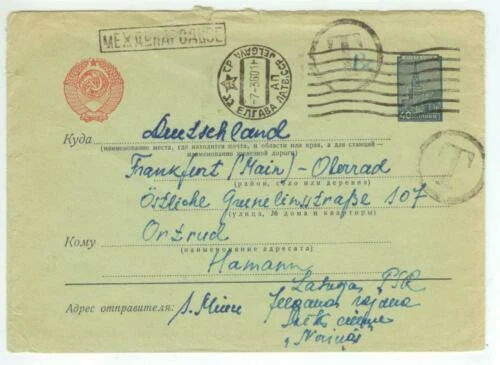 МЕЖДУНАРОДНОЕ
ЕЛГАВА ЛАТВ.ССР JELGAVA
АП
-7-860 1
T
40 КОПЕЕК
T
Куда Deutschland
(наименование места, где находится почта, и области или края, а для станций —
наименование железной дороги)
Frankfurt (Main) - Oberrad
(район, село или деревня)
Östliche Grunelinstraße 107
(улица, № дома и квартиры)
Кому Ortrud
(наименование адресата)
Hamann
Latvijas PSR
Адрес отправителя: s. Jelgavas rajona